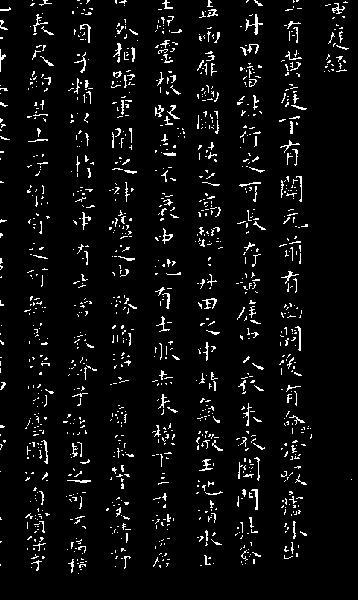 黄庭經
上有黄庭下有關元前有幽闕後有命門噓吸廬外出
入丹田審能行之可長存黄庭中人衣朱衣關門壯籥
蓋兩扉幽闕俠之高巍巍丹田之中精氣微玉池清水上
生肥靈根堅志不衰中池有士服赤朱橫下三寸神所居
中外相距重閉之神廬之中務脩治玄膺氣管受精符
急固子精以自持宅中有士常衣絳子能見之可不病橫
理長尺約其上子能守之可無恙呼噏廬間以自償保守